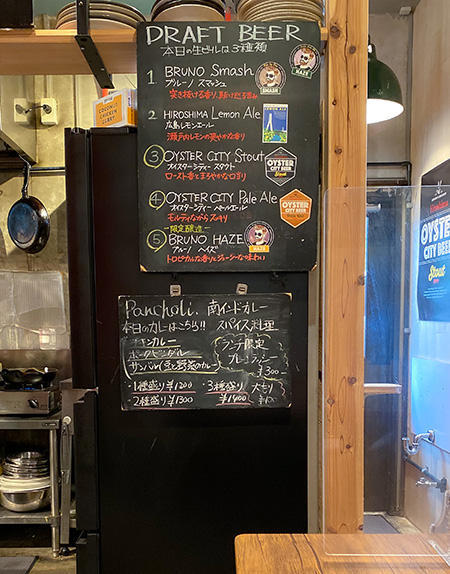 DRAFT BEER
本日の生ビールは3種類
1 BRUNO Smash
ブルーノ スマッシュ
突き抜ける香り、駆け巡る旨み
SMASH
HAZE
2 HIROSHIMA Lemon Ale
広島レモンエール
瀬戸内レモンの爽やかな香り
LEMON ALE
3 OYSTER CITY Stout
オイスターシティー スタウト
ロースト香とまろやかな口当り
OYSTER CITY BEER
4 OYSTER CITY Pale Ale
オイスターシティー ペールエール
モルティながらスッキリ
OYSTER CITY BEER
限定醸造
5 BRUNO HAZE
ブルーノ ヘイズ
トロピカルな香りとジューシーな味わい
HAZE
Pancholi. 南インドカレー
本日のカレーはこちら!! スパイス料理
チキンカレー
ポークビンダルー
サンバル(豆と野菜のカレー)
ランチ限定
ブレンティー
¥300
・1種盛り¥1200 ・3種盛り 大もり
・2種盛り¥1300 ¥1400 ¥100
COCONUT
CHICKEN
CURRY
OYSTER
CITY BEER
Stout